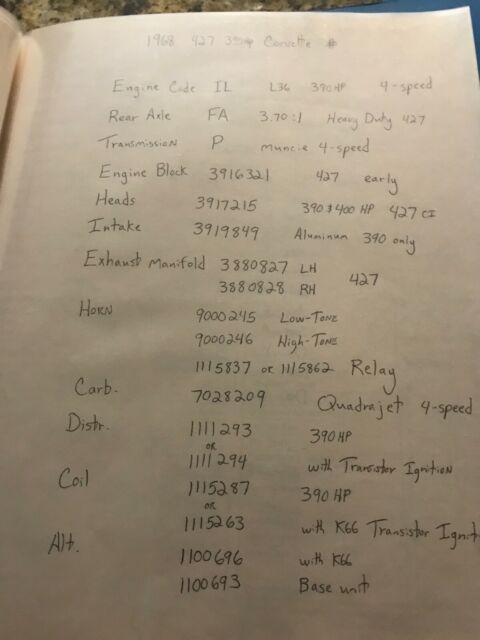 1968 427 390HP Corvette #
Engine Code IL L36 390HP 4-speed
Rear Axle FA 3.70:1 Heavy Duty 427
Transmission P muncie 4-speed
Engine Block 3916321 427 early
Heads 3917215 390 & 400 HP 427 CI
Intake 3919849 Aluminum 390 only
Exhaust Manifold 3880827 LH
3880828 RH 427
Horn 9000245 Low-Tone
9000246 High-Tone
1115837 or 1115862 Relay
Carb. 7028209 Quadrajet 4-speed
Distr. 1111293 390HP
OR
1111294 with Transistor Ignition
Coil 1115287 390 HP
OR
1115263 with K66 Transistor Ignit
Alt. 1100696 with K66
1100693 Base unit